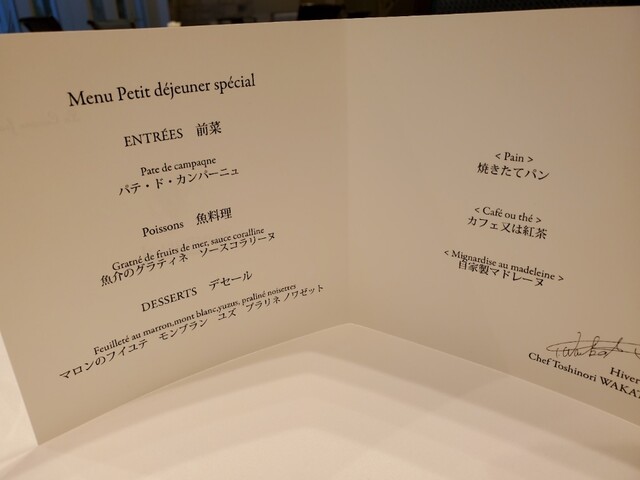 Menu Petit déjeuner spécial
ENTRÉES 前菜
Pate de campaqne
パテ・ド・カンパーニュ
Poissons 魚料理
Gratné de fruits de mer, sauce coralline
魚介のグラティネ ソースコラリーヌ
DESSERTS デセール
Feuilleté au marron,mont blanc,yuzus, praliné noisettes
マロンのフイユテ モンブラン ユズ プラリネ ノワゼット
< Pain >
焼きたてパン
< Café ou thé >
カフェ又は紅茶
< Mignardise au madeleine >
自家製マドレーヌ
Hiver
Chef Toshinori WAKA